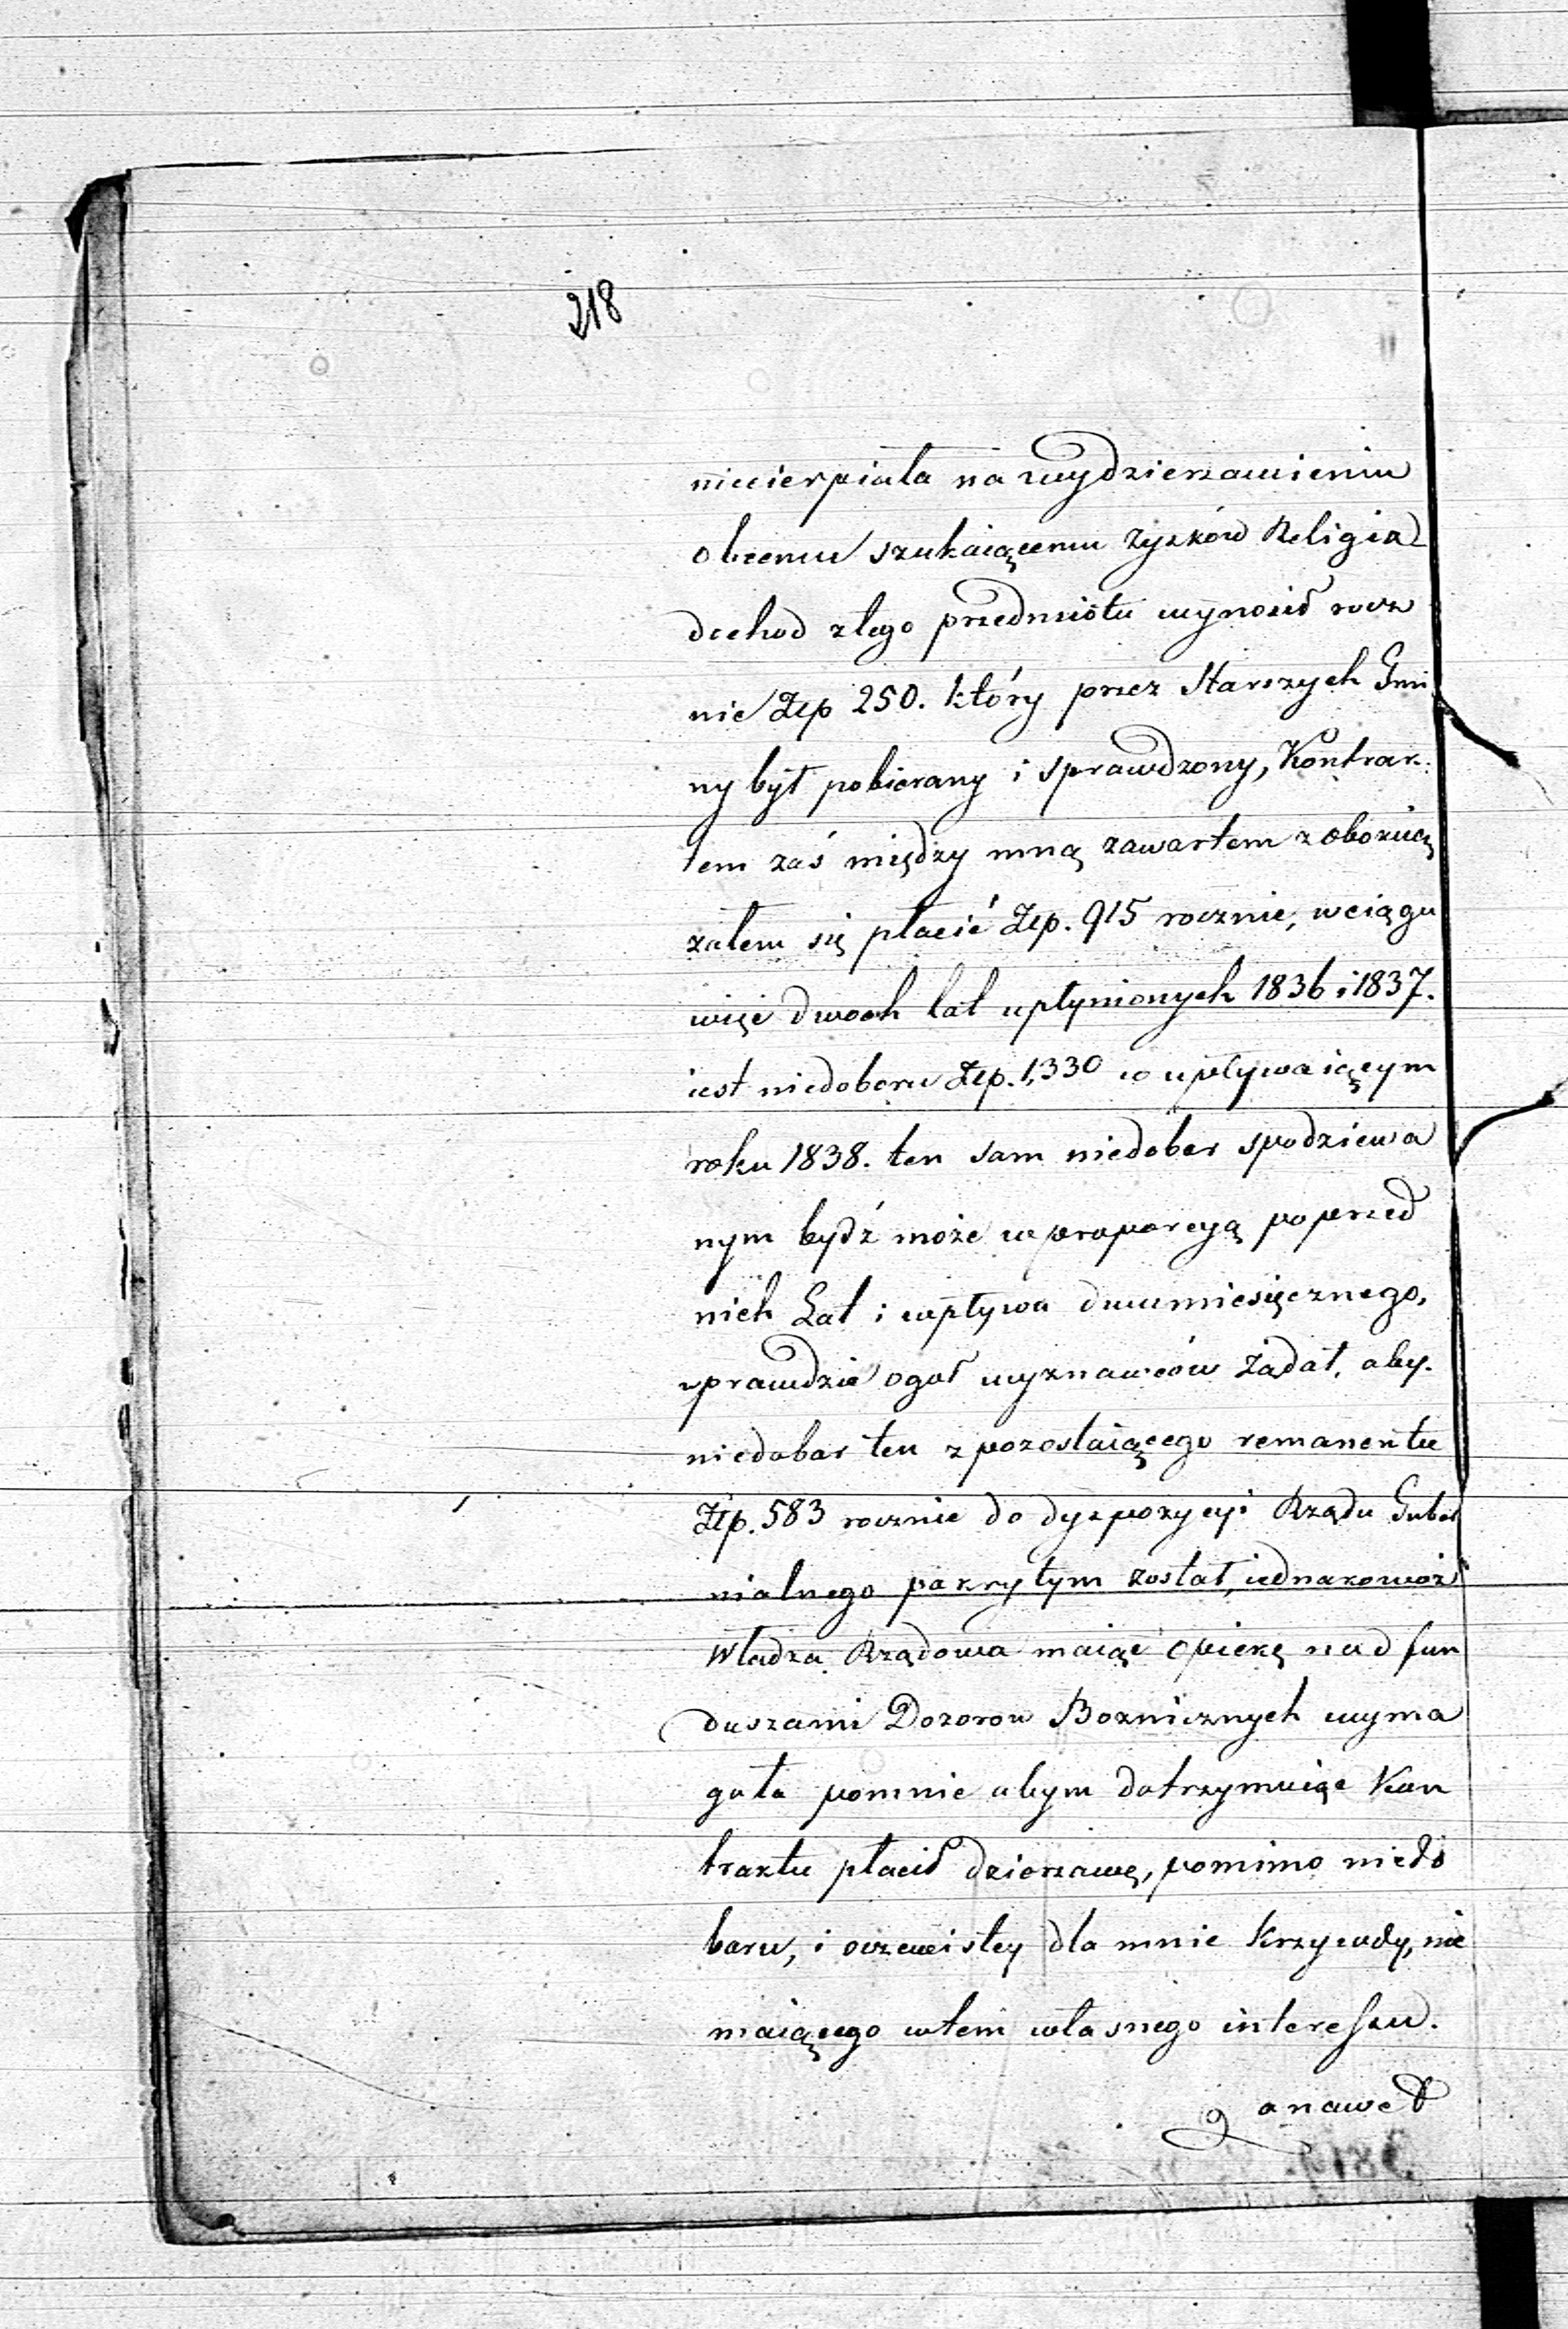 218
niecierpiała na wydzierzawieniu
obcemu szukaiącemu zyzków Religia
dochod ztego przedmiotu wynosił rocz
nie Złp 250. który przez Starszych Gmi
ny był pobierany i sprawdzony, Kontrak:
tem zaś między mną zawartem zobowią
załem się płacić Złp. 915 rocznie, wciągu
więc dwoch lat upłynionych 1836 i 1837.
iest niedoboru Złp. 1,330 w upływaiącym
roku 1838. ten sam niedobor spodziewa
nym bydź może w proporcyą poprzed
nich Lat i wpływu dwumiesięcznego,
wprawdzie ogół wyznawców żądał, aby.
niedobor ten z pozostaiącego remanentu
Złp. 583 rocznie do dyzpozycyi Rządu Guber
nialnego pokrytym został, iednakowoż
Władza Rządowa maiąc opiekę nad fun
duszami Dozorow Boznicznych wyma
gała pomnie abym dotrzymuiąc Kon
traktu płacił dzierzawę, pomimo niedo
boru, i oczewistey dla mnie Krzywdy, nie
maiącego wtem własnego interessu.
a nawet